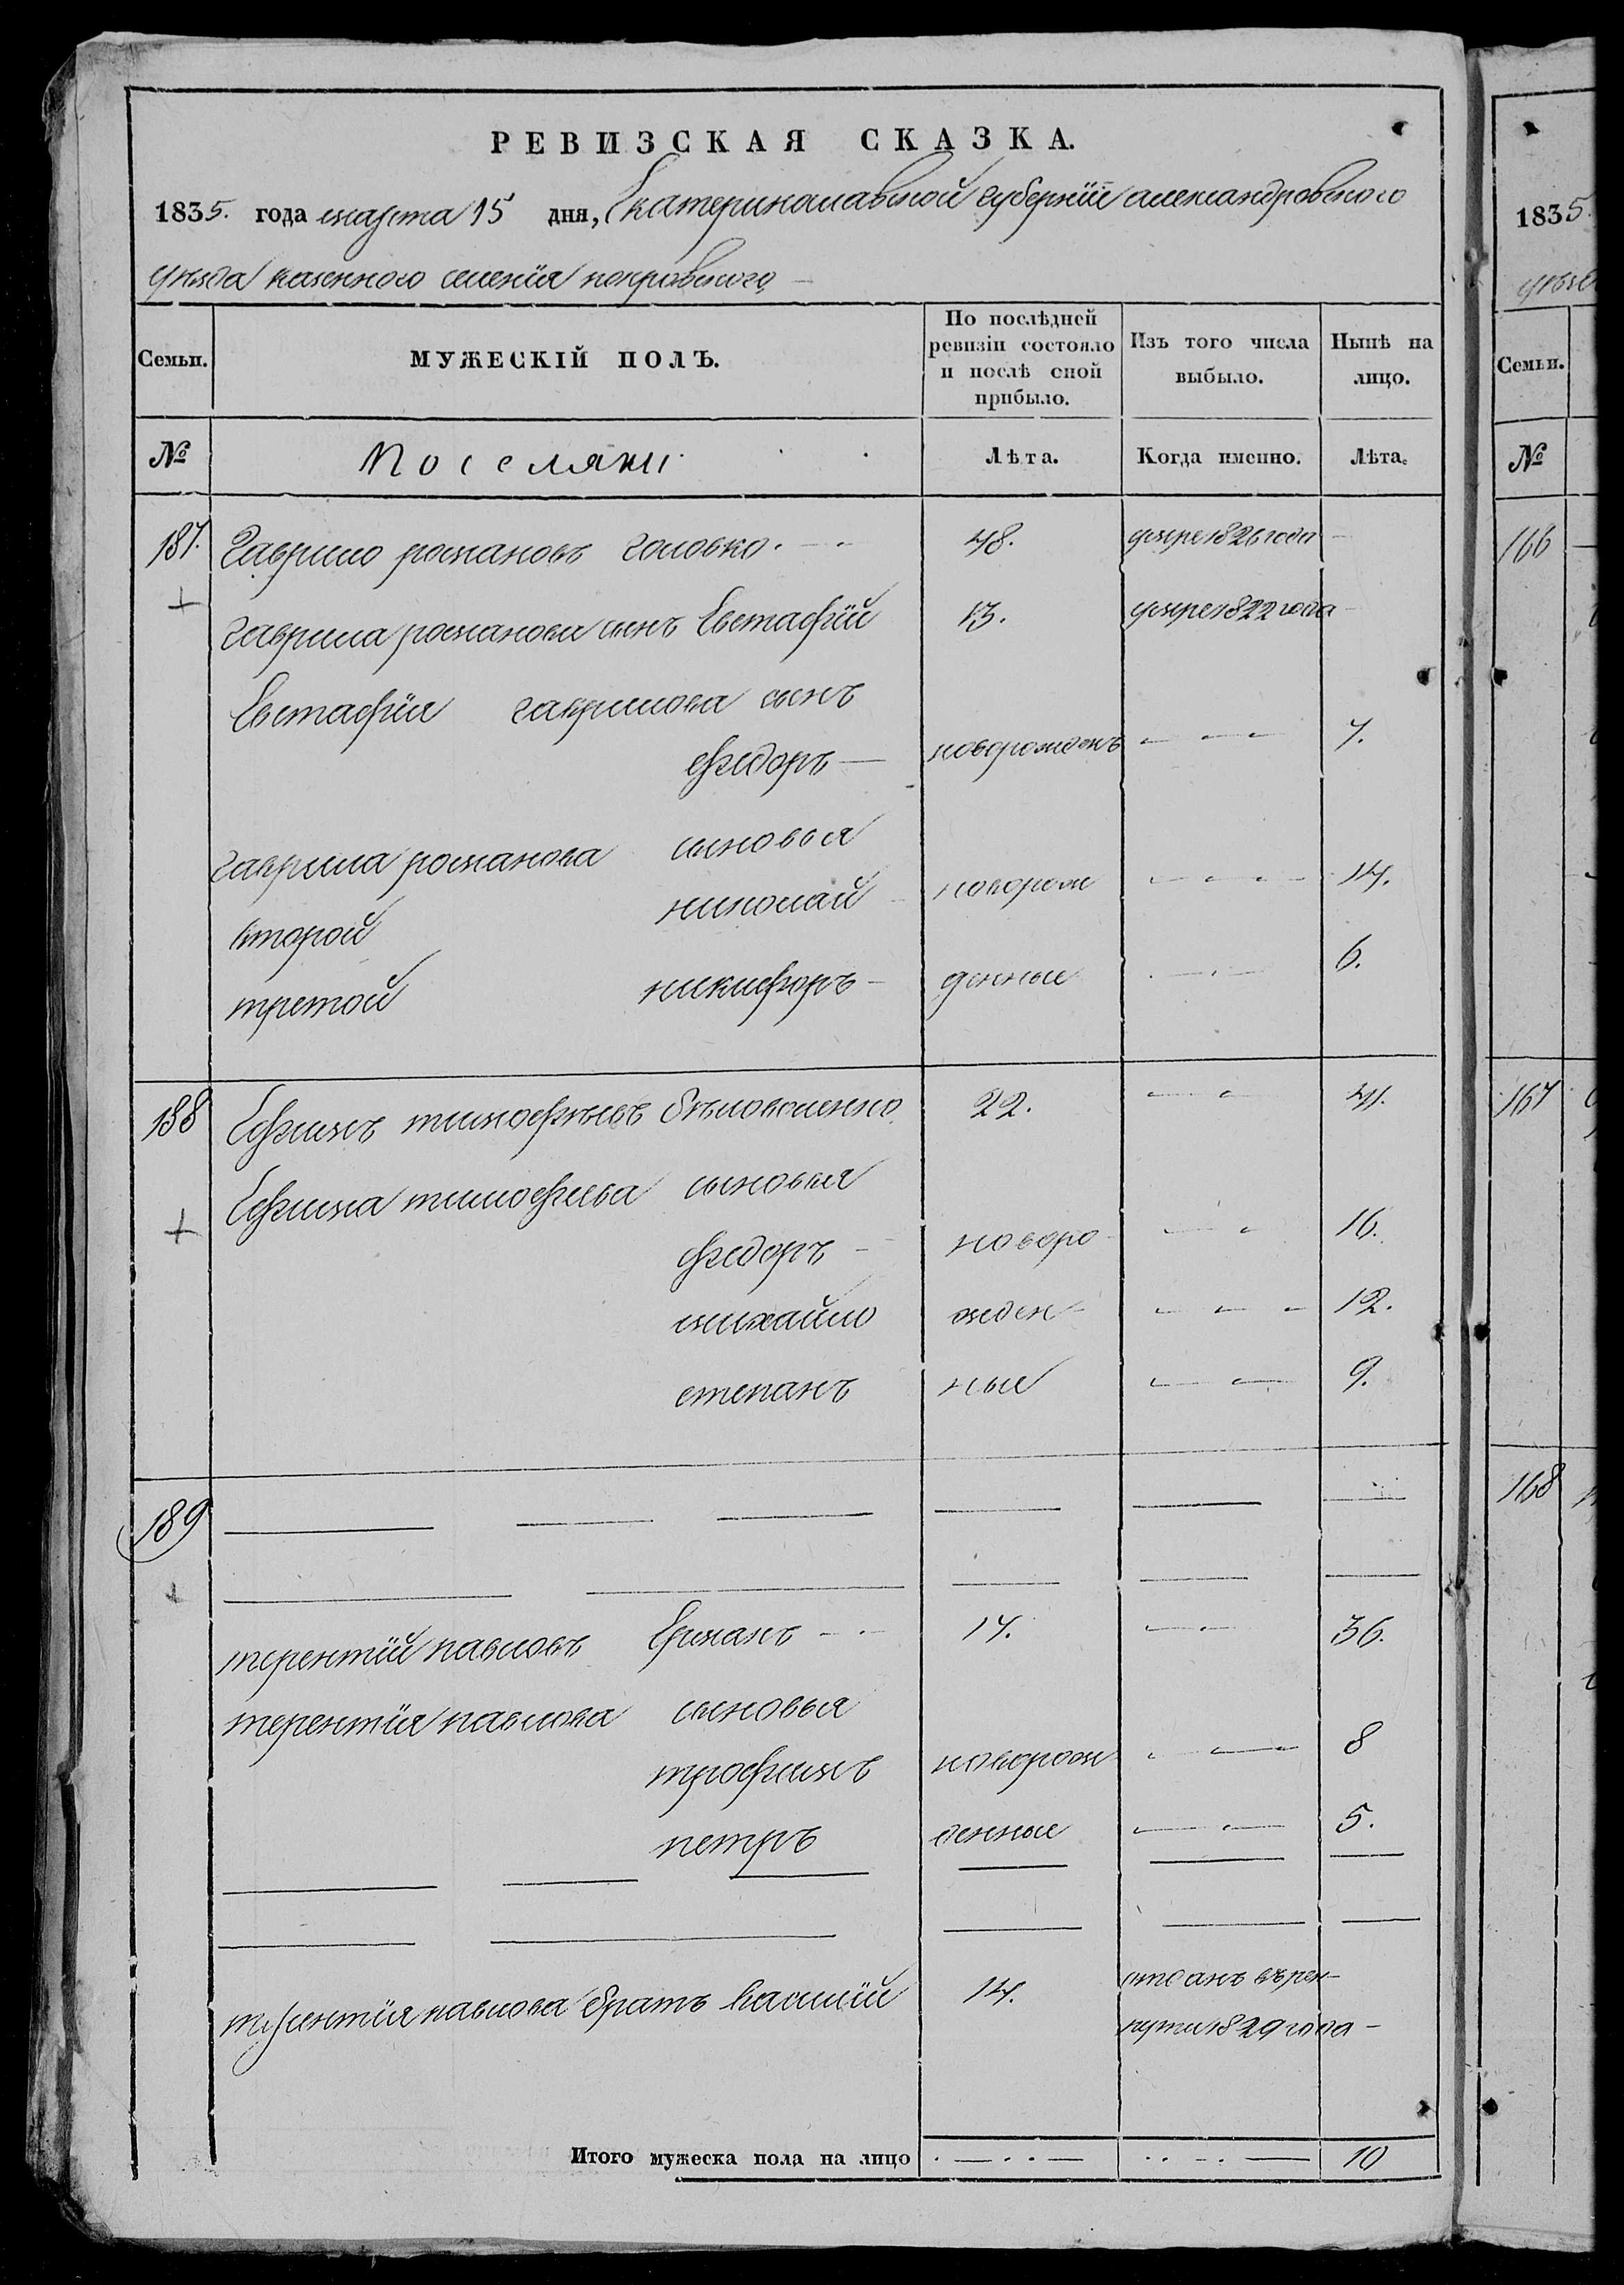 РЕВИЗСКАЯ СКАЗКА.
1835. года марта 15 дня, Екатеринославской губернiи александровского
уѣзда казенного селенiя покровского
Семьи. МУЖЕСКIЙ ПОЛЪ. По послѣдней ревизiи состояло и послѣ оной прибыло. Изъ того числа выбыло. Нынѣ на лицо.
№ Поселяни Лѣта. Когда именно. Лѣта.
187. Гаврило романовъ головко. 48. умре 1826 года
гаврила романова сынъ Евстафiй 13. умре 1822 года
Евстафiя гаврилова сынъ
федоръ новорожденъ 7.
гаврила романова сыновья
второй николай новорож 14.
третой никифоръ денные 6.
188 Ефимъ тимофѣевъ 22. 41.
Ефима тимофеева сыновья
федоръ новоро 16.
михайло жден 12.
степанъ ные 9.
189
терентiй павловъ 17. 36.
терентiя павлова сыновья
трофимъ новорож 8
петръ денные 5.
терентiя павлова братъ 14. отданъ врек
руты 1829 года
Итого мужеска пола на лицо 10
1835
уѣзд
Семьи.
№
166
167
168